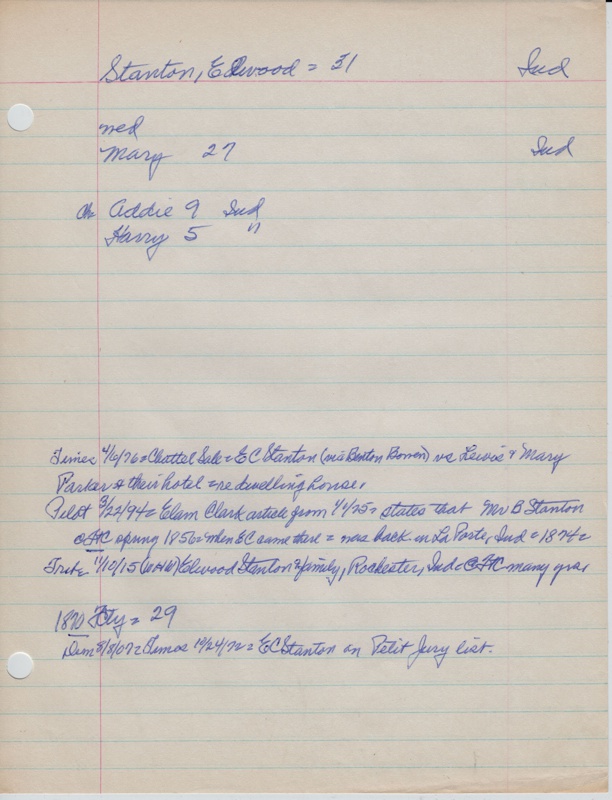 Stanton, Elwood = 31 Ind
wed
Mary 27 Ind
ch Addie 9 Ind
Harry 5 "
Times 4/6/76 = Chattel Sale = E C Stanton (vs Benton Bowen) vs Lewis & Mary
Parker & their hotel = re dwelling house,
Pilot 3/22/94 = Elam Clark article from 1/1/75 = states that Mr B Stanton
spring 1856 = when EC came there = now back in La Porte, Ind = 1874 =
Trib = 11/10/15 Elwood Stanton & family, Rochester, Ind = many yrs,
1870 Fty = 29
Dem 8/8/07 = Times 10/24/72 = EC Stanton on Petit Jury list.